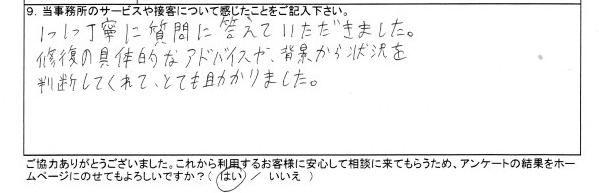 9. 当事務所のサービスや接客について感じたことをご記入下さい。
1つ1つ丁寧に質問に答えていただきました。
修復の具体的なアドバイスや、背景から状況を
判断してくれて、とても助かりました。
ご協力ありがとうございました。これから利用するお客様に安心して相談に来てもらうため、アンケートの結果をホー
ムページにのせてもよろしいですか？( はい ／ いいえ )